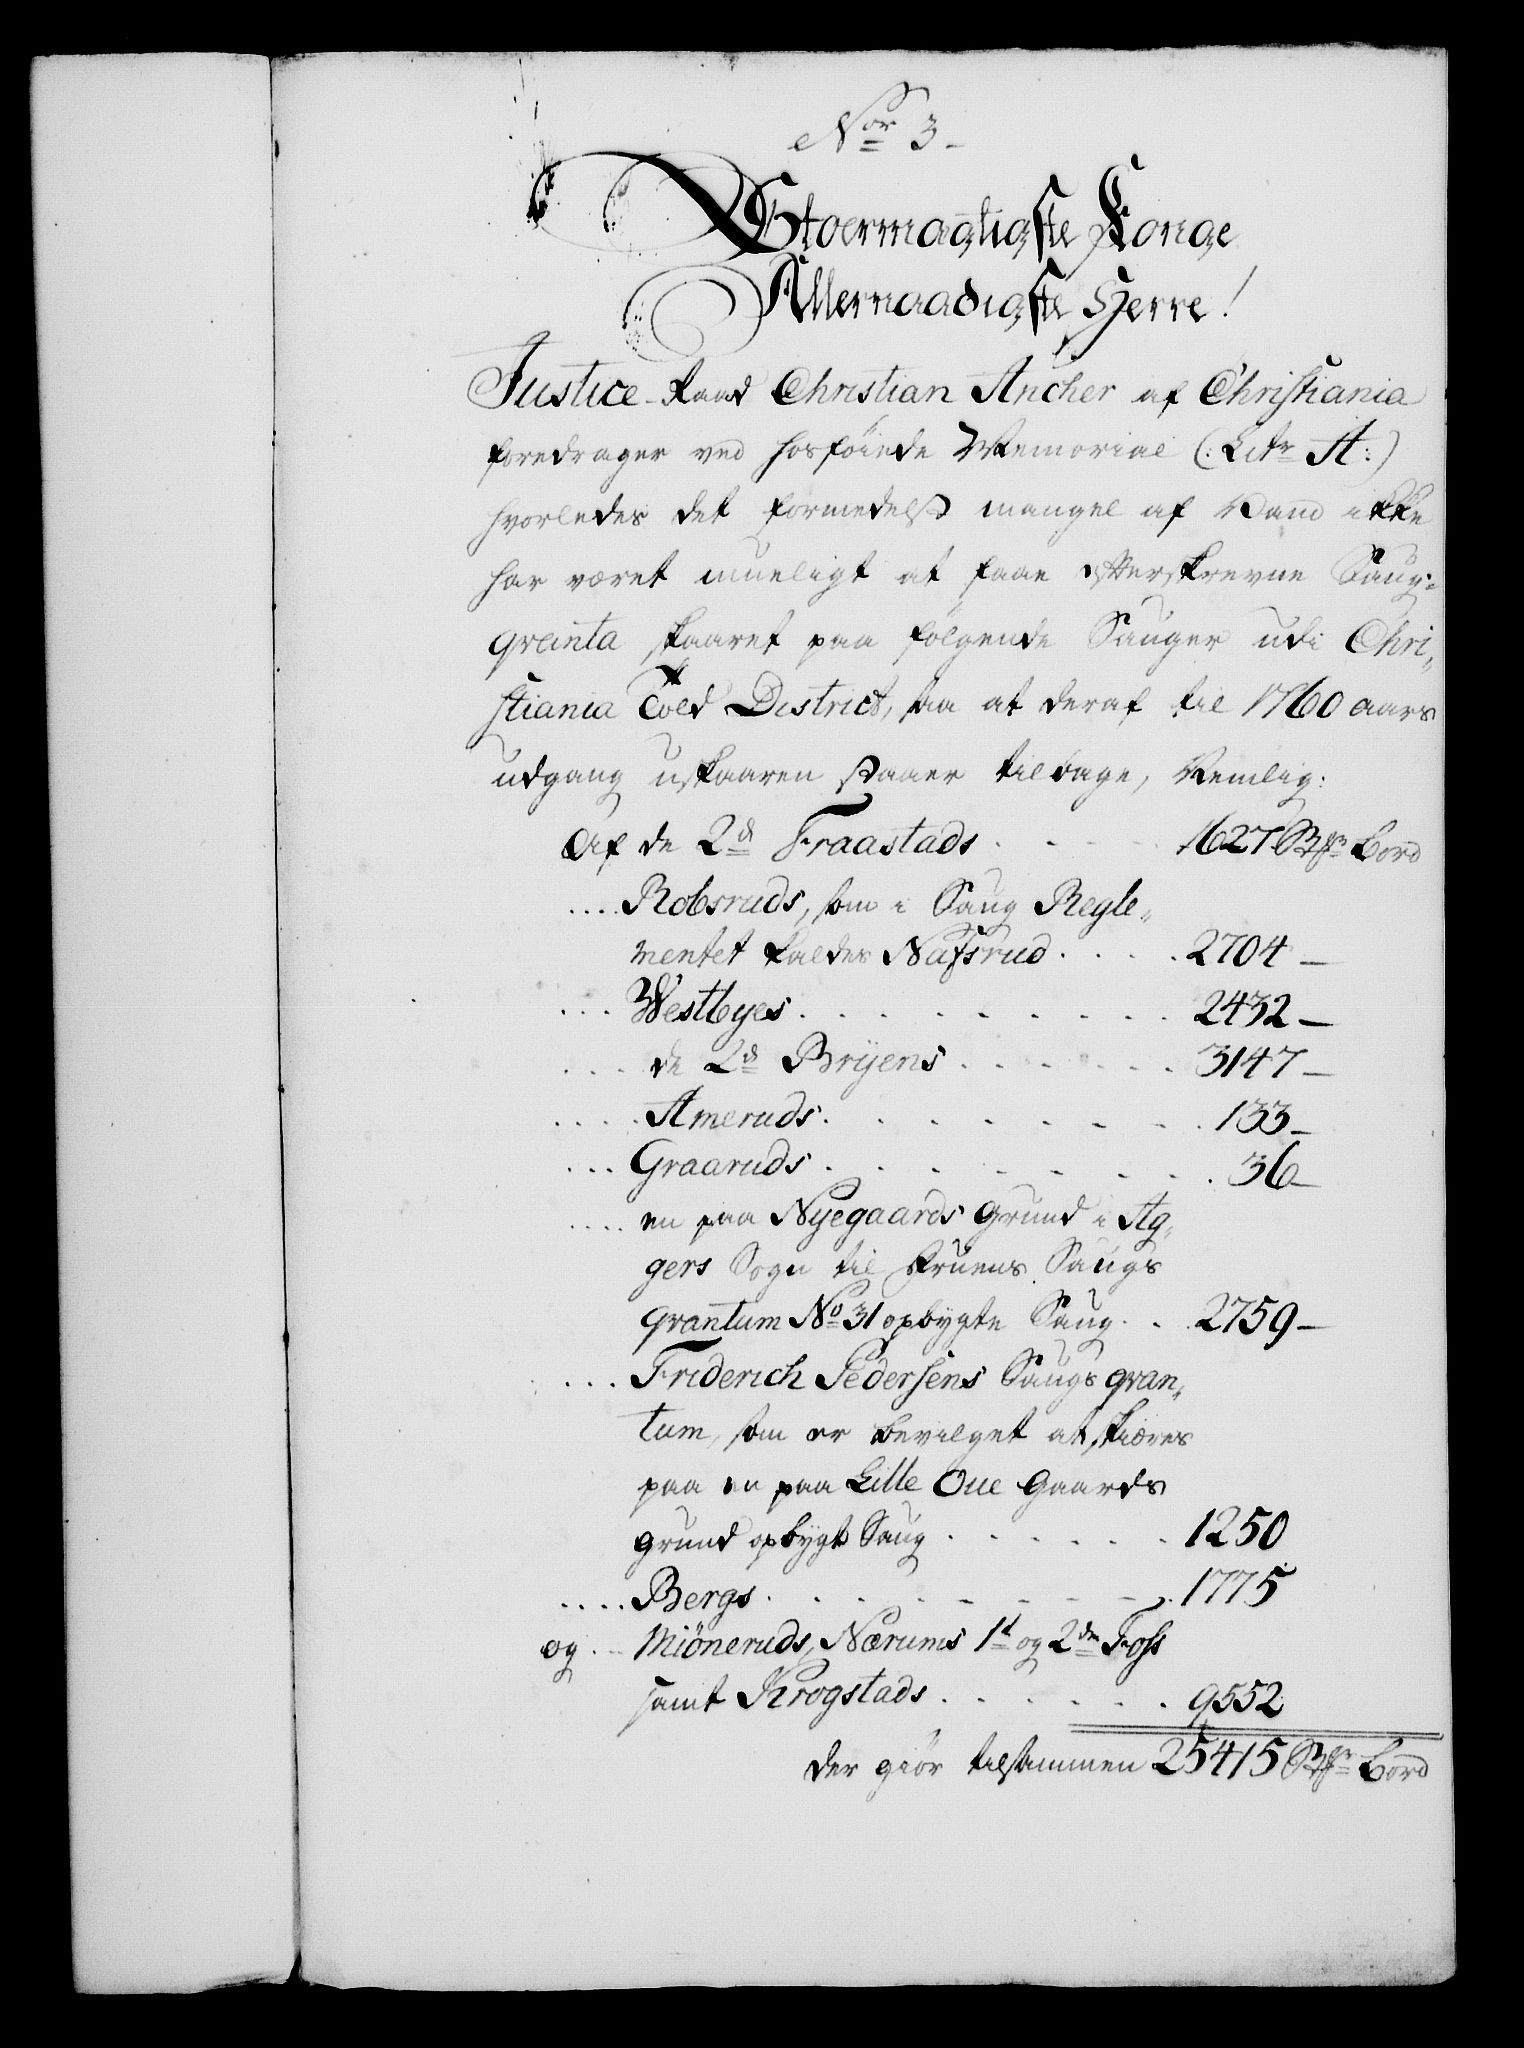 Nor 3
Stoermægtigste Konge
Allernaadigste Herre!
Justice-Raad Christian Ancher af Christiania
foredrager ved hosføiede Memorial (: Litr A:)
hvorledes det formedelst mangel af Vand ikke
har været mueligt at faae efterskrevne Saug-
qvanta skaaret paa følgende Sauger udi Chri„
stiania Told District, saa at deraf til 1760 aars
udgang uskaaren staaer tilbage, Nemlig:
Af de 2de Fraastads . . . 1627 Bord
.... Robsruds, som i Saug Regle„
mentet kaldes Nafsrud . . . . 2704 —
... Westbyes . . . . . . . . 2432 —
... de 2de Bryens . . . . . . 3147 —
.... Ameruds . . . . . . . . 133 —
... Graaruds . . . . . . . . 36 —
.... en paa Nyegaards Grund i Ag„
gers Sogn til Fruens Saugs
qvantum No 31 opbygte Saug . . 2759 —
... Friderich Pedersens Saugs qvan„
tum, som er bevilget at skiæres
paa en paa Lille Oue Gaards
grund opbygt Saug . . . . . . 1250
.... Bergs . . . . . . . . 1775
og . . Miöneruds, Nærums 1st og 2den Foss
samt Krogstads . . . . . . 9552
der giør tilsammen 25415 Bord